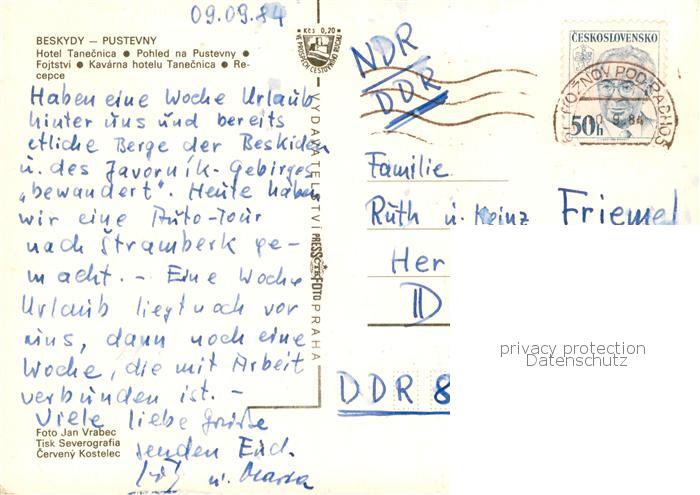 09.09.84
BESKYDY — PUSTEVNY
Hotel Tanečnica ● Pohled na Pustevny ●
Fojtství ● Kavárna hotelu Tanečnica ● Re-
cepce
Haben eine Woche Urlaub
hinter uns und bereits
etliche Berge der Beskiden
u. des Javorník-Gebirges
„bewandert". Heute haben
wir eine Auto-Tour
nach Štramberk ge-
macht. – Eine Woche
Urlaub liegt noch vor
uns, dann noch eine
Woche, die mit Arbeit
verbunden ist. –
Viele liebe Grüße
senden Euch
u.
Foto Jan Vrabec
Tisk Severografia
Červený Kostelec
Kčs 0,20
VE PROSPĚCH CESTOVNÍHO RUCHU
VYDAVATELSTVÍ PRESSFOTO PRAHA
ČTK
NDR
DDR
ČESKOSLOVENSKO
50h
ROŽNOV POD RADHOŠ
9.84
Familie
Ruth u. Heinz Friemel
Her
D
DDR 8
privacy protection
Datenschutz